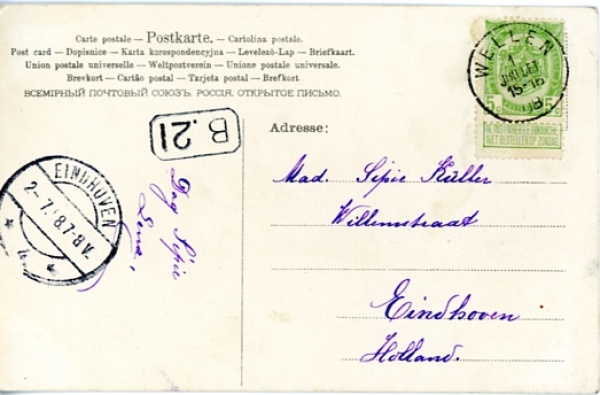 Carte postale – Postkarte. – Cartolina postale.
Post card – Dopisnice – Karta korespondencyjna – Levelező-Lap – Briefkaart.
Union postale universelle – Weltpostverein – Unione postale universale.
Brevkort – Cartão postal – Tarjeta postal – Brefkort.
ВСЕМІРНЫЙ ПОЧТОВЫЙ СОЮЗЪ. РОССІЯ. ОТКРЫТОЕ ПИСЬМО.
WELLEN
1
JUILLET
15-16
08
5c
NE PAS LIVRER LE DIMANCHE
NIET BESTELLEN OP ZONDAG
B. 21
Adresse:
EINDHOVEN
2-7.8.7-8V.
Dag Sipie
Lena,
Mad. Sipie Küller
Willemstraat
Eindhoven
Holland.